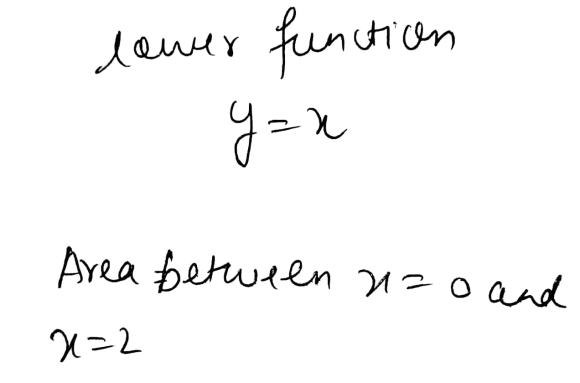 lower function
y = x
Area between x = 0 and
x = 2